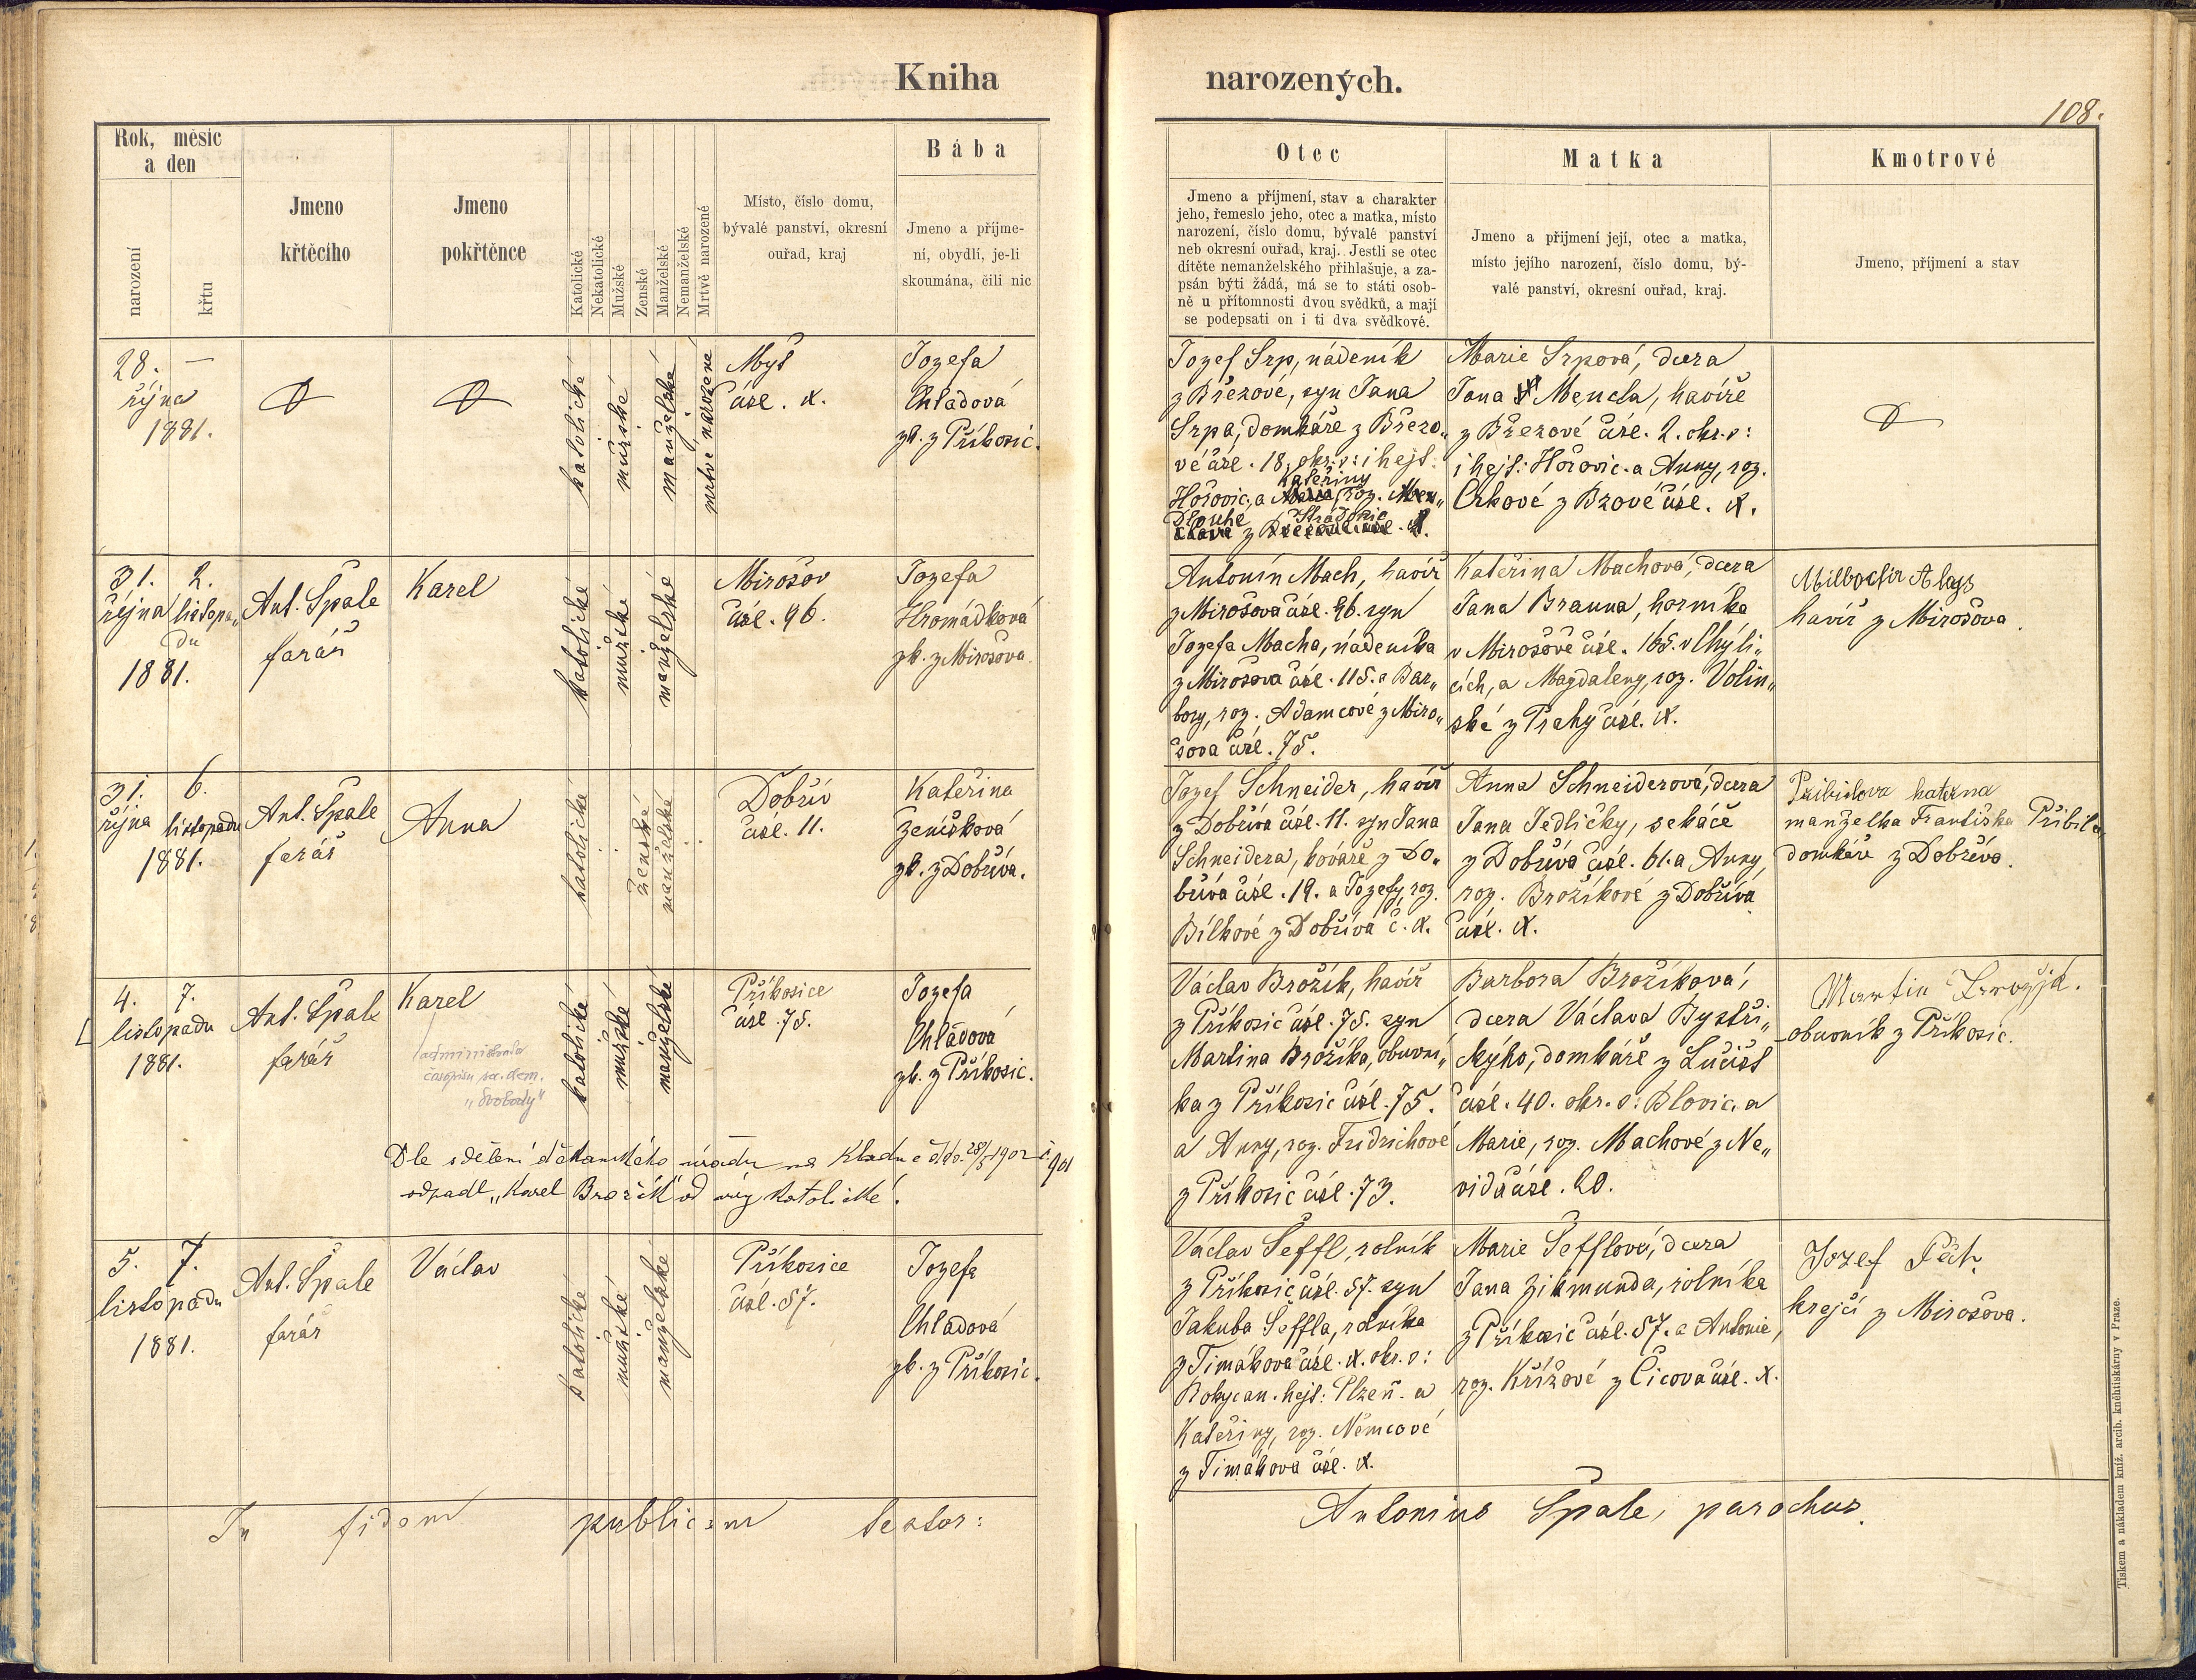 Kniha narozených.
108.
Rok, měsíc
a den
narození
křtu
Jmeno
křtěcího
Jmeno
pokřtěnce
Katolické
Nekatolické
Mužské
Ženské
Manželské
Nemanželské
Mrtvě narozené
Místo, číslo domu,
bývalé panství, okresní
ouřad, kraj
Bába
Jmeno a příjme-
ní, obydlí, je-li
skoumána, čili nic
Otec
Jmeno a příjmení, stav a charakter
jeho, řemeslo jeho, otec a matka, místo
narození, číslo domu, bývalé panství
neb okresní ouřad, kraj. Jestli se otec
dítěte nemanželského přihlašuje, a za-
psán býti žádá, má se to státi osob-
ně u přítomnosti dvou svědků, a mají
se podepsati on i ti dva svědkové.
Matka
Jmeno a přijmení její, otec a matka,
místo jejího narození, číslo domu, bý-
valé panství, okresní ouřad, kraj.
Kmotrové
Jmeno, příjmení a stav
28. —
října
1881.
katolické
mužské
manželské
mrtvě narozené
Myš
čísl. X.
Jozefa
Chladová
zk. z Příkosic.
Jozef Srp, nádeník
z Březové, syn Jana
Srpa, domkáře z Březo„
vé čísl. 18, okr. s: i hejt:
Hořovic, a Kateřiny roz.
Dlouhé z Hrádku X.
Marie Srpová, dcera
Jana Mencla, havíře
z Březové čísl. 2. okr. s:
i hejt: Hořovic. a Anny, roz.
Crkové z Bzové čísl. X.
31. 2.
října listopa„
du
1881.
Ant. Špale
farář
Karel
katolické
mužské
manželské
Mirošov
čísl. 96.
Jozefa
Hromádková
zk. z Mirošova.
Antonín Mach, havíř
z Mirošova čísl. 96. syn
Jozefa Macha, nádeníka
z Mirošova čísl. 115. a Bar„
bory, roz. Adamcové z Miro„
šova čísl. 75.
Kateřina Machová, dcera
Jana Brauna, horníka
v Mirošově čísl. 165. v Chýli„
cích, a Magdaleny, roz. Volin„
ské z Prahy čísl. X.
Alays
havíř z Mirošova.
31. 6.
října listopadu
1881.
Ant. Špale
farář
Anna
katolické
ženské
manželské
Dobřív
čísl. 11.
Kateřina
Zeníšková
zk. z Dobříva.
Jozef Schneider, havíř
z Dobříva čísl. 11. syn Jana
Schneidera, kováře z Do„
bříva čísl. 19. a Jozefy, roz.
Bílkové z Dobříva č. X.
Anna Schneiderová, dcera
Jana Jedličky, sekáče
z Dobříva čísl. 61. a Anny,
roz. Brožíkové z Dobříva
čísl. X.
Pribilova katerna
manželka Františka Přibila,
domkáře z Dobříva.
4. 7.
listopadu
1881.
Ant. Špale
farář
Karel
administrator
časopisu soc. dem.
„Svobody“
katolické
mužské
manželské
Příkosice
čísl. 75.
Jozefa
Chladová
zk. z Příkosic.
Dle sdělení děkanského úřadu na Kladně ddo. 28/5 1902 č. 901
odpadl „Karel Brožík“ od víry katolické.
Václav Brožík, havíř
z Příkosic čísl. 75. syn
Martina Brožíka, obuvní„
ka z Příkosic čísl. 75.
a Anny, roz. Fridrichové
z Příkosic čísl. 73.
Barbora Brožíková,
dcera Václava Bystři„
ckýho, domkáře z Lučišť
čísl. 40. okr. s: Blovic. a
Marie, roz. Machové z Ne„
vida čísl. 20.
Martin
obuvník z Příkosic.
5. 7.
listopadu
1881.
Ant. Špale
farář
Václav
katolické
mužské
manželské
Příkosice
čísl. 57.
Jozefa
Chladová
zk. z Příkosic.
Václav Šeffl, rolník
z Příkosic čísl. 57. syn
Jakuba Šeffla, rolníka
z Timákova čísl. X. okr. s:
Rokycan. hejt: Plzeň. a
Kateřiny, roz. Němcové
z Timákova čísl. X.
Marie Šefflová, dcera
Jana Zikmunda, rolníka
z Příkosic čísl. 57. a Antonie,
roz. Křížové z Čicova čísl. X.
Jozef
krejčí z Mirošova.
In fidem publicam testor:
Antonius Špale, parochus.
Tiskem a nákladem kníž. arcib. kněhtiskárny v Praze.